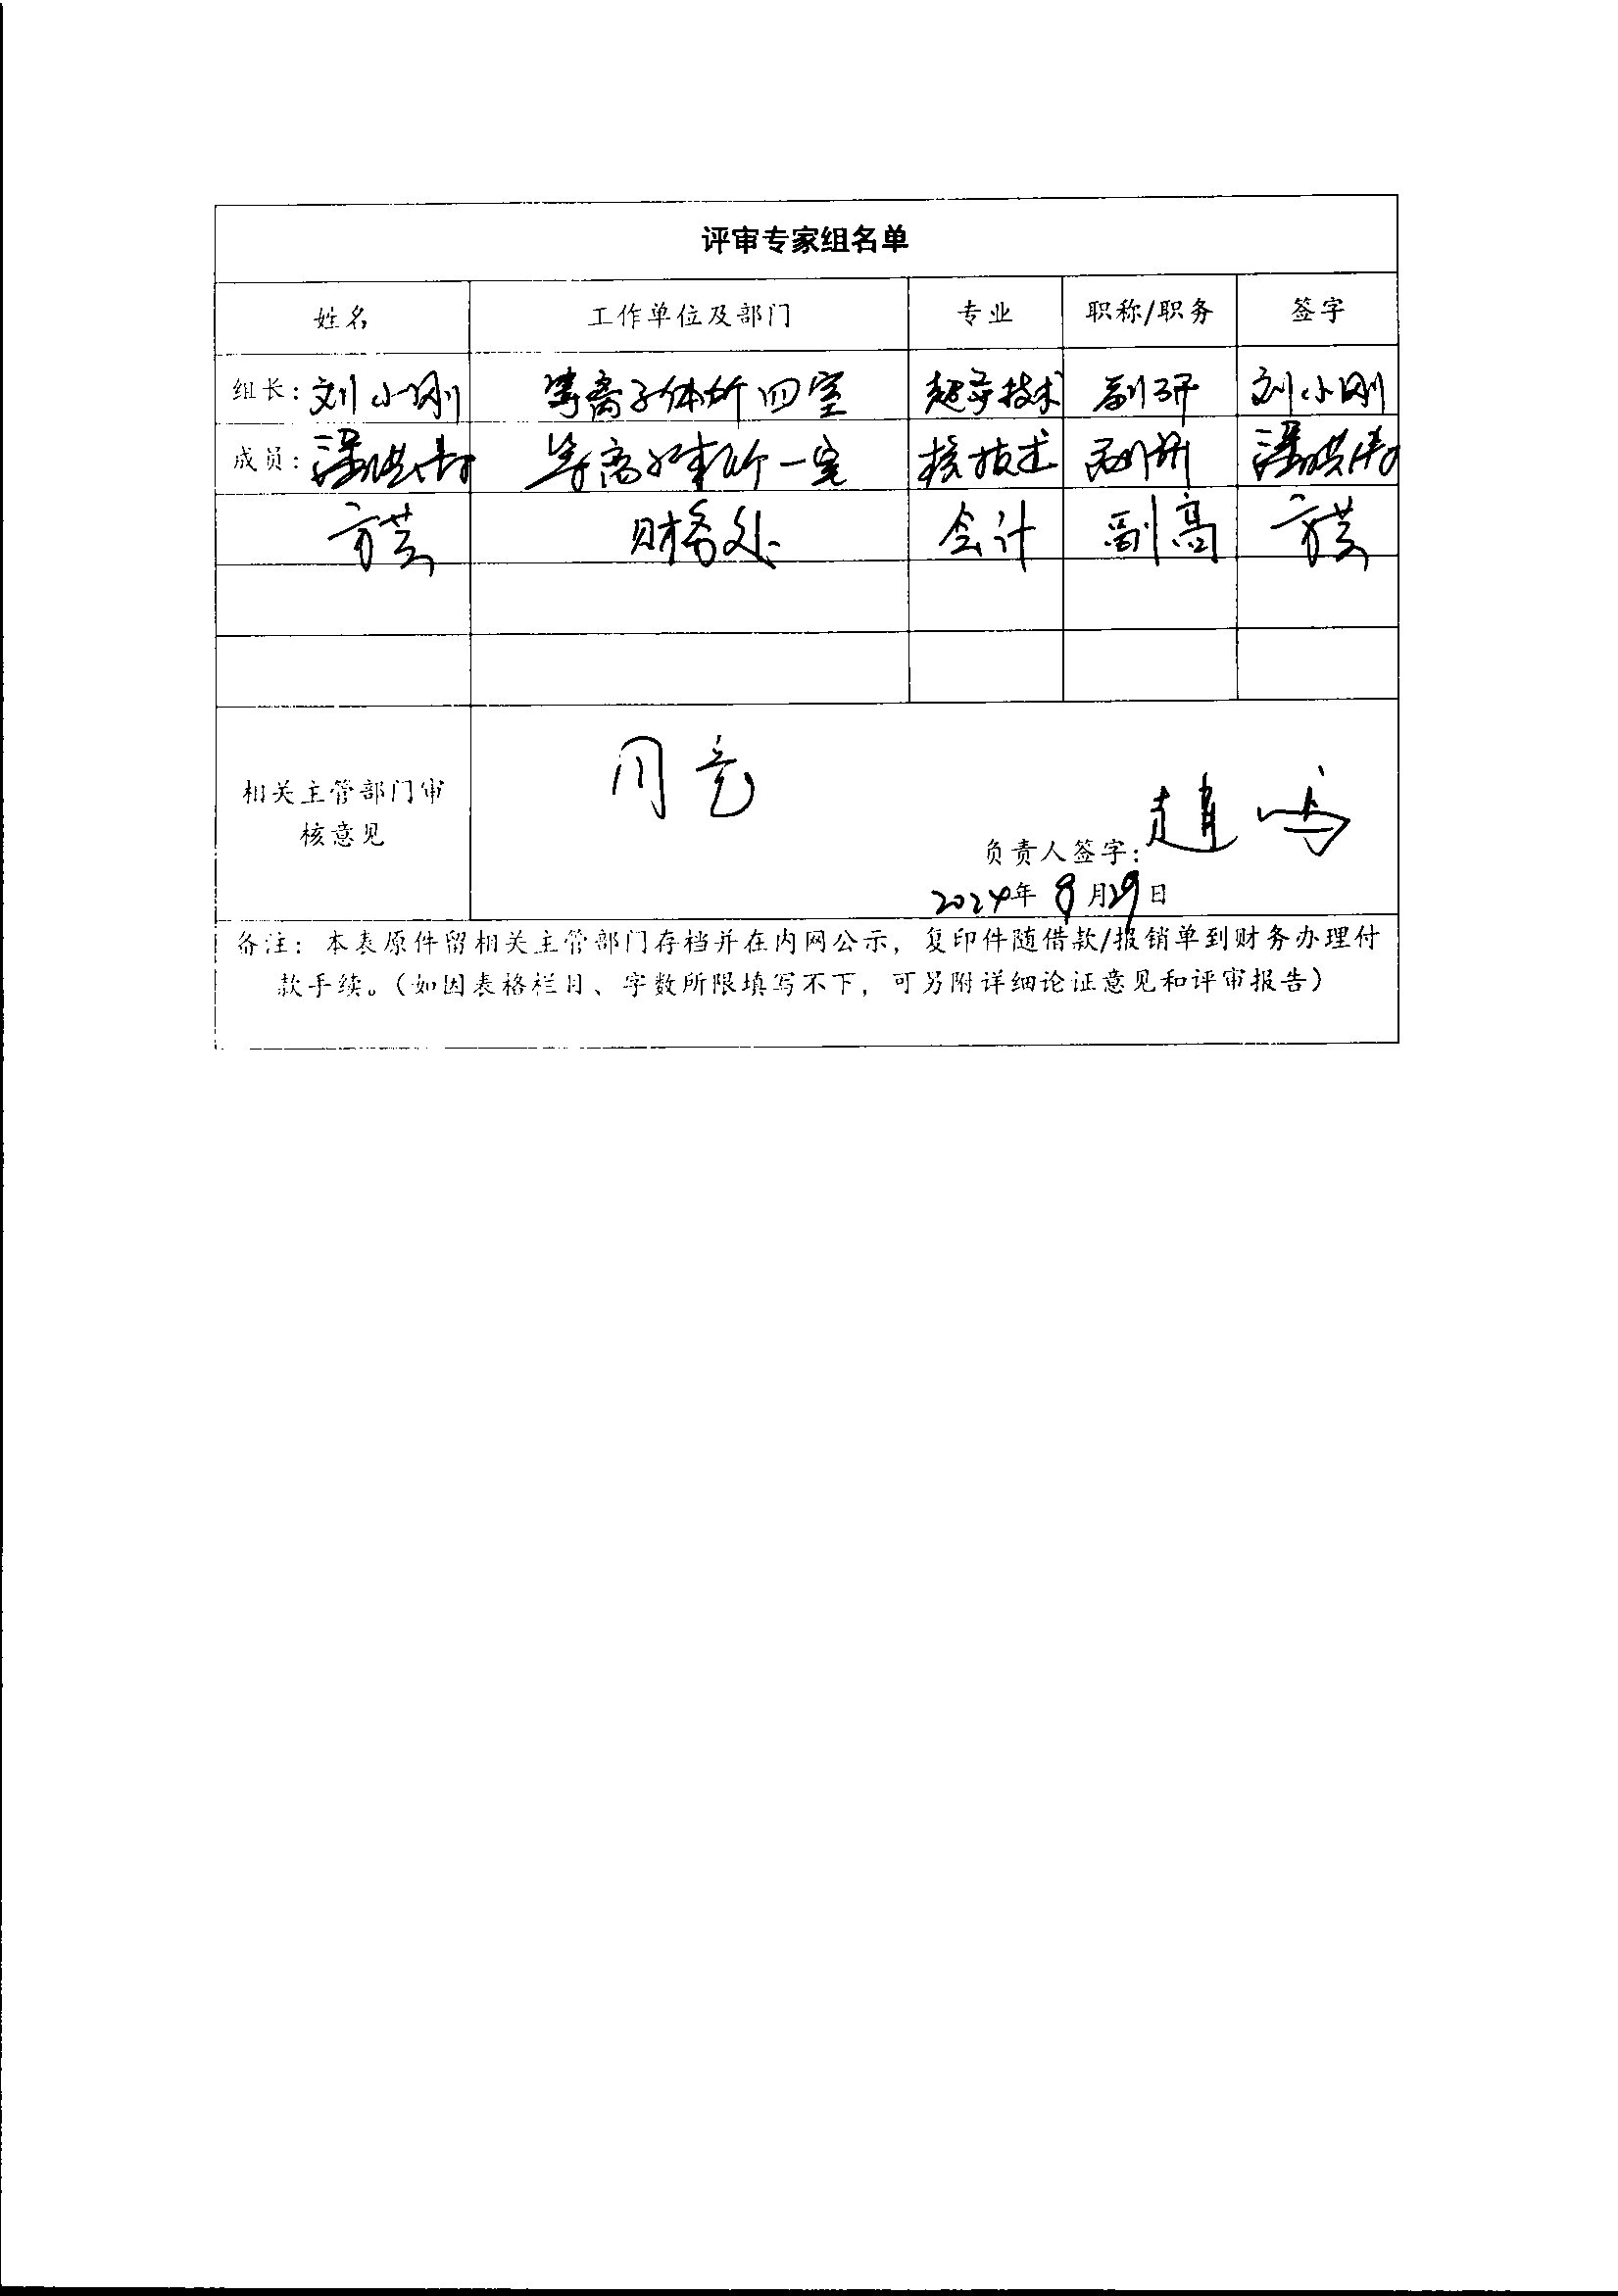 评审专家组名单
姓名 工作单位及部门 专业 职称/职务 签字
组长：刘小刚 等离子体所四室 超导技术 副研 刘小刚
成员： 等离子体所一室 核技术 副研
财务处 会计 副高
同意
相关主管部门审
核意见
负责人签字：赵
2024年8月29日
备注：本表原件留相关主管部门存档并在内网公示，复印件随借款/报销单到财务办理付
款手续。（如因表格栏目、字数所限填写不下，可另附详细论证意见和评审报告）